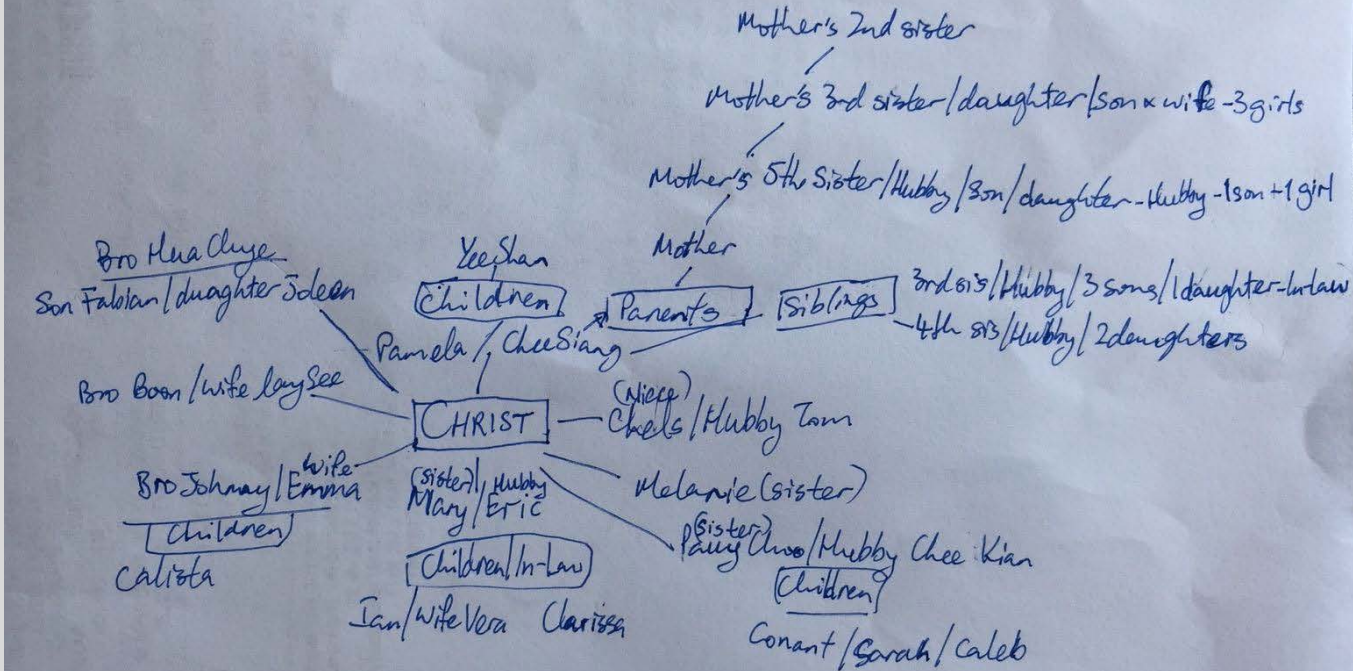 Mother's 2nd sister
Mother's 3rd sister/daughter/son x wife-3 girls
Mother's 5th Sister/Hubby/son/daughter-Hubby-1son+1girl
Mother
Bro Hua Chye
Son Fabian/duaghter Joleen
YeeShan
Children
Pamela/CheeSiang
Parents
Siblings
3rd sis/Hubby/3 sons/1daughter-In-law
4th sis/Hubby/2daughters
Bro Boon/wife laySee
CHRIST
(Niece)
Chels/Hubby Tom
Wife
Bro Johnny/Emma
Children
Calista
(sister) Hubby
Mary/Eric
Children/In-Law
Ian/WifeVera Clarissa
Melanie (sister)
(Sister)
Choo/Hubby Chee Kian
Children
Conant/Sarah/Caleb